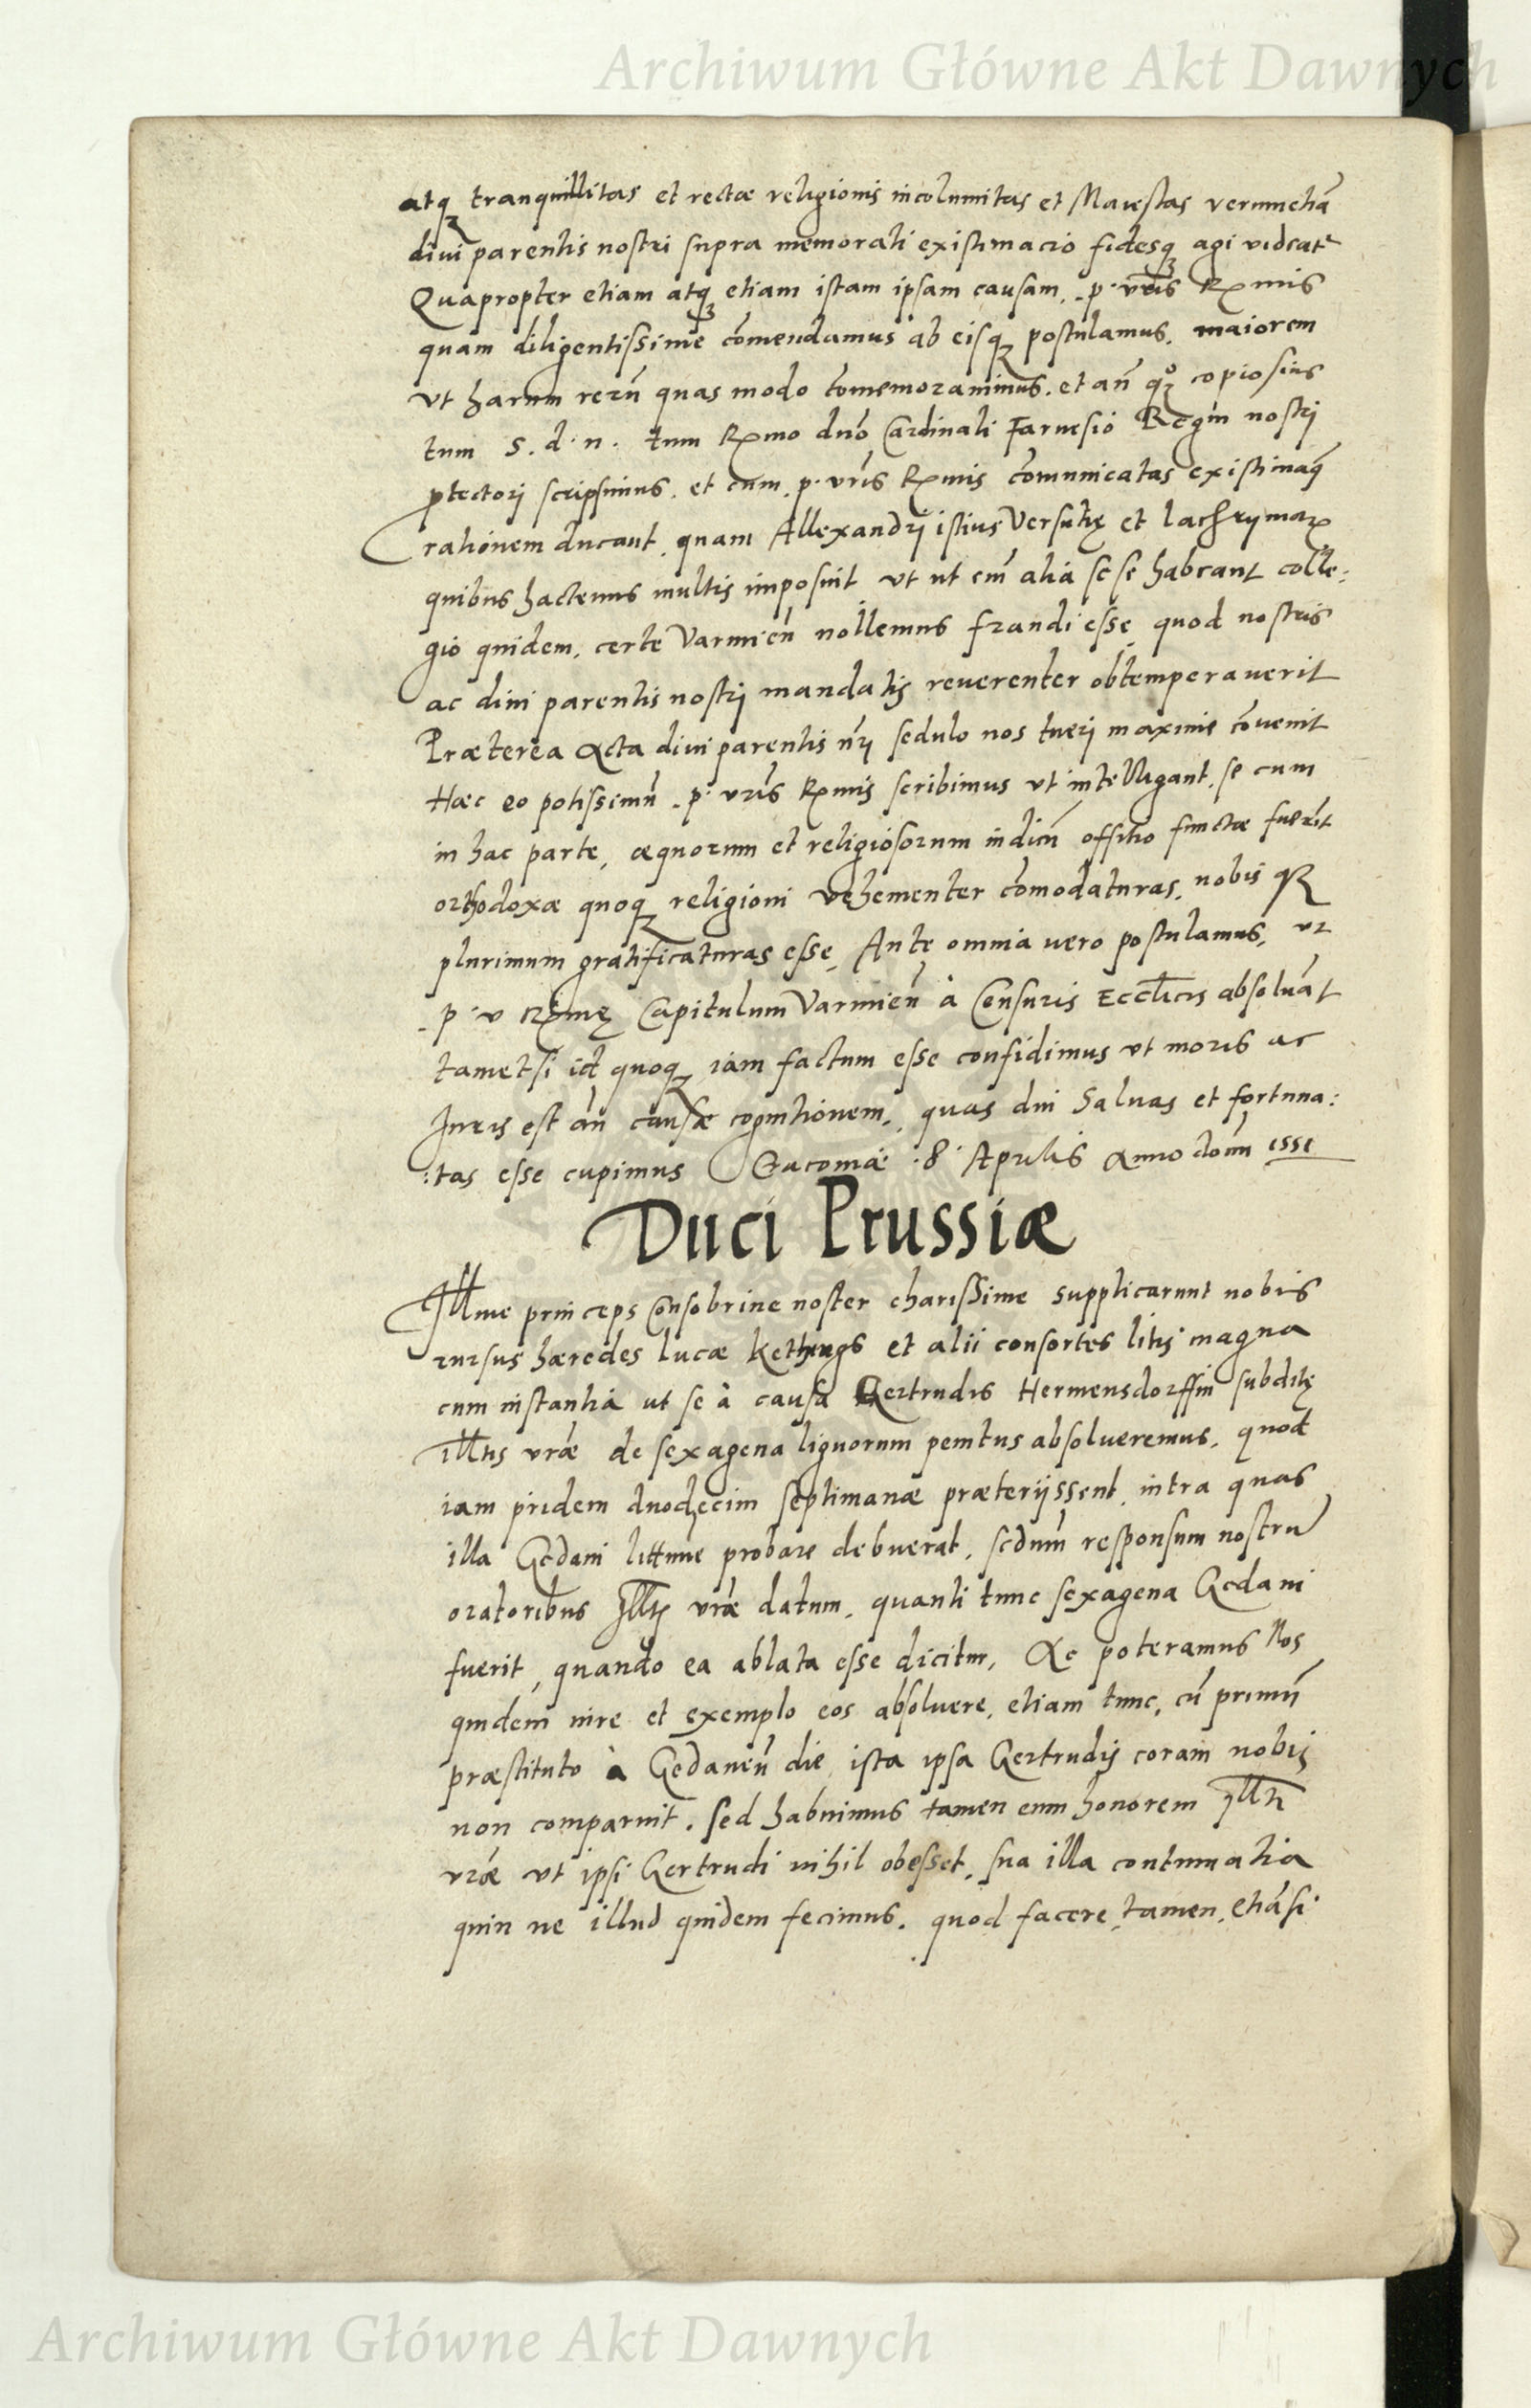 Archiwum Główne Akt Dawnych
atq tranquillitas et rectæ religionis incolumitas et Maiestas verumetiā
divi parentis nostri supra memorati existimacio fidesq agi videat
Quapropter etiam atq etiam istam ipsam causam, p. vrīs Rmis
quam diligentissime cōmendamus ab eisq postulamus, maiorem
vt harum rerū quas modo cōmemoravimus. et añ qº copiosius
tum S. d. n. tum Rmo dnō Cardinali Farnesio Regni nostri
ptectori scripsimus. et cum p. vrīs Rmis cōmunicatas existimaq
rationem ducant, quam Allexandri istius Versutię et lachrymarum
quibus hactenus multis imposuit vt ut em̄ alia sese habeant colle:
gio quidem, certe Varmien̄ nollemus fraudi esse, quod nostris
ac divi parentis nostri mandatis reverenter obtemperaverit
Præterea Acta divi parentis nr̄i sedulo nos tueri maxime cōvenit
Hæc eo potissimū p. vrīs Rmis scribimus vt intelligant, se cum
in hac parte, æquorum et religiosorum iudicū offitio functæ fuerīt
orthodoxæ quoq religioni vehementer cōmodaturas, nobis qR
plurimum gratificaturas esse, Ante omnia vero postulamus, vt
p. v Rmę Capitulum Varmien̄ à Censuris Eccl̄icis absolvāt
tametsi id quoq iam factum esse confidimus vt moris ac
Iuris est añ causæ cognitionem, quas diu Salvas et fortuna:
:tas esse cupimus Cracoviæ .8. Aprilis Anno domī esse
Duci Prussiæ
Illme princeps Consobrine noster charissime supplicarunt nobis
rursus hæredes lucæ Kethings et alii consortes litis magna
cum instantia ut se à causa Gertrudis Hermensdorffin subditę
Illtis vræ de sexagena lignorum penitus absolveremus, quod
iam pridem duodecim septimanæ præteriissent, intra quas
illa Gedani littime probare debuerat, sedum̄ responsum nostrū
oratoribus Illtis vræ datum, quanti tunc sexagena Gedani
fuerit, quando ea ablata esse dicitur, Ac poteramus Nos
quidem iure et exemplo eos absolvere, etiam tunc, cū primū
præstituto à Gedanen̄ die, ista ipsa Gertrudis coram nobis
non comparuit. sed habuimus tamen eum honorem Illti
vræ ut ipsi Gertrudi nihil obesset, sua illa contumatia
quin ne illud quidem fecimus, quod facere tamen, etiāsi
Archiwum Główne Akt Dawnych